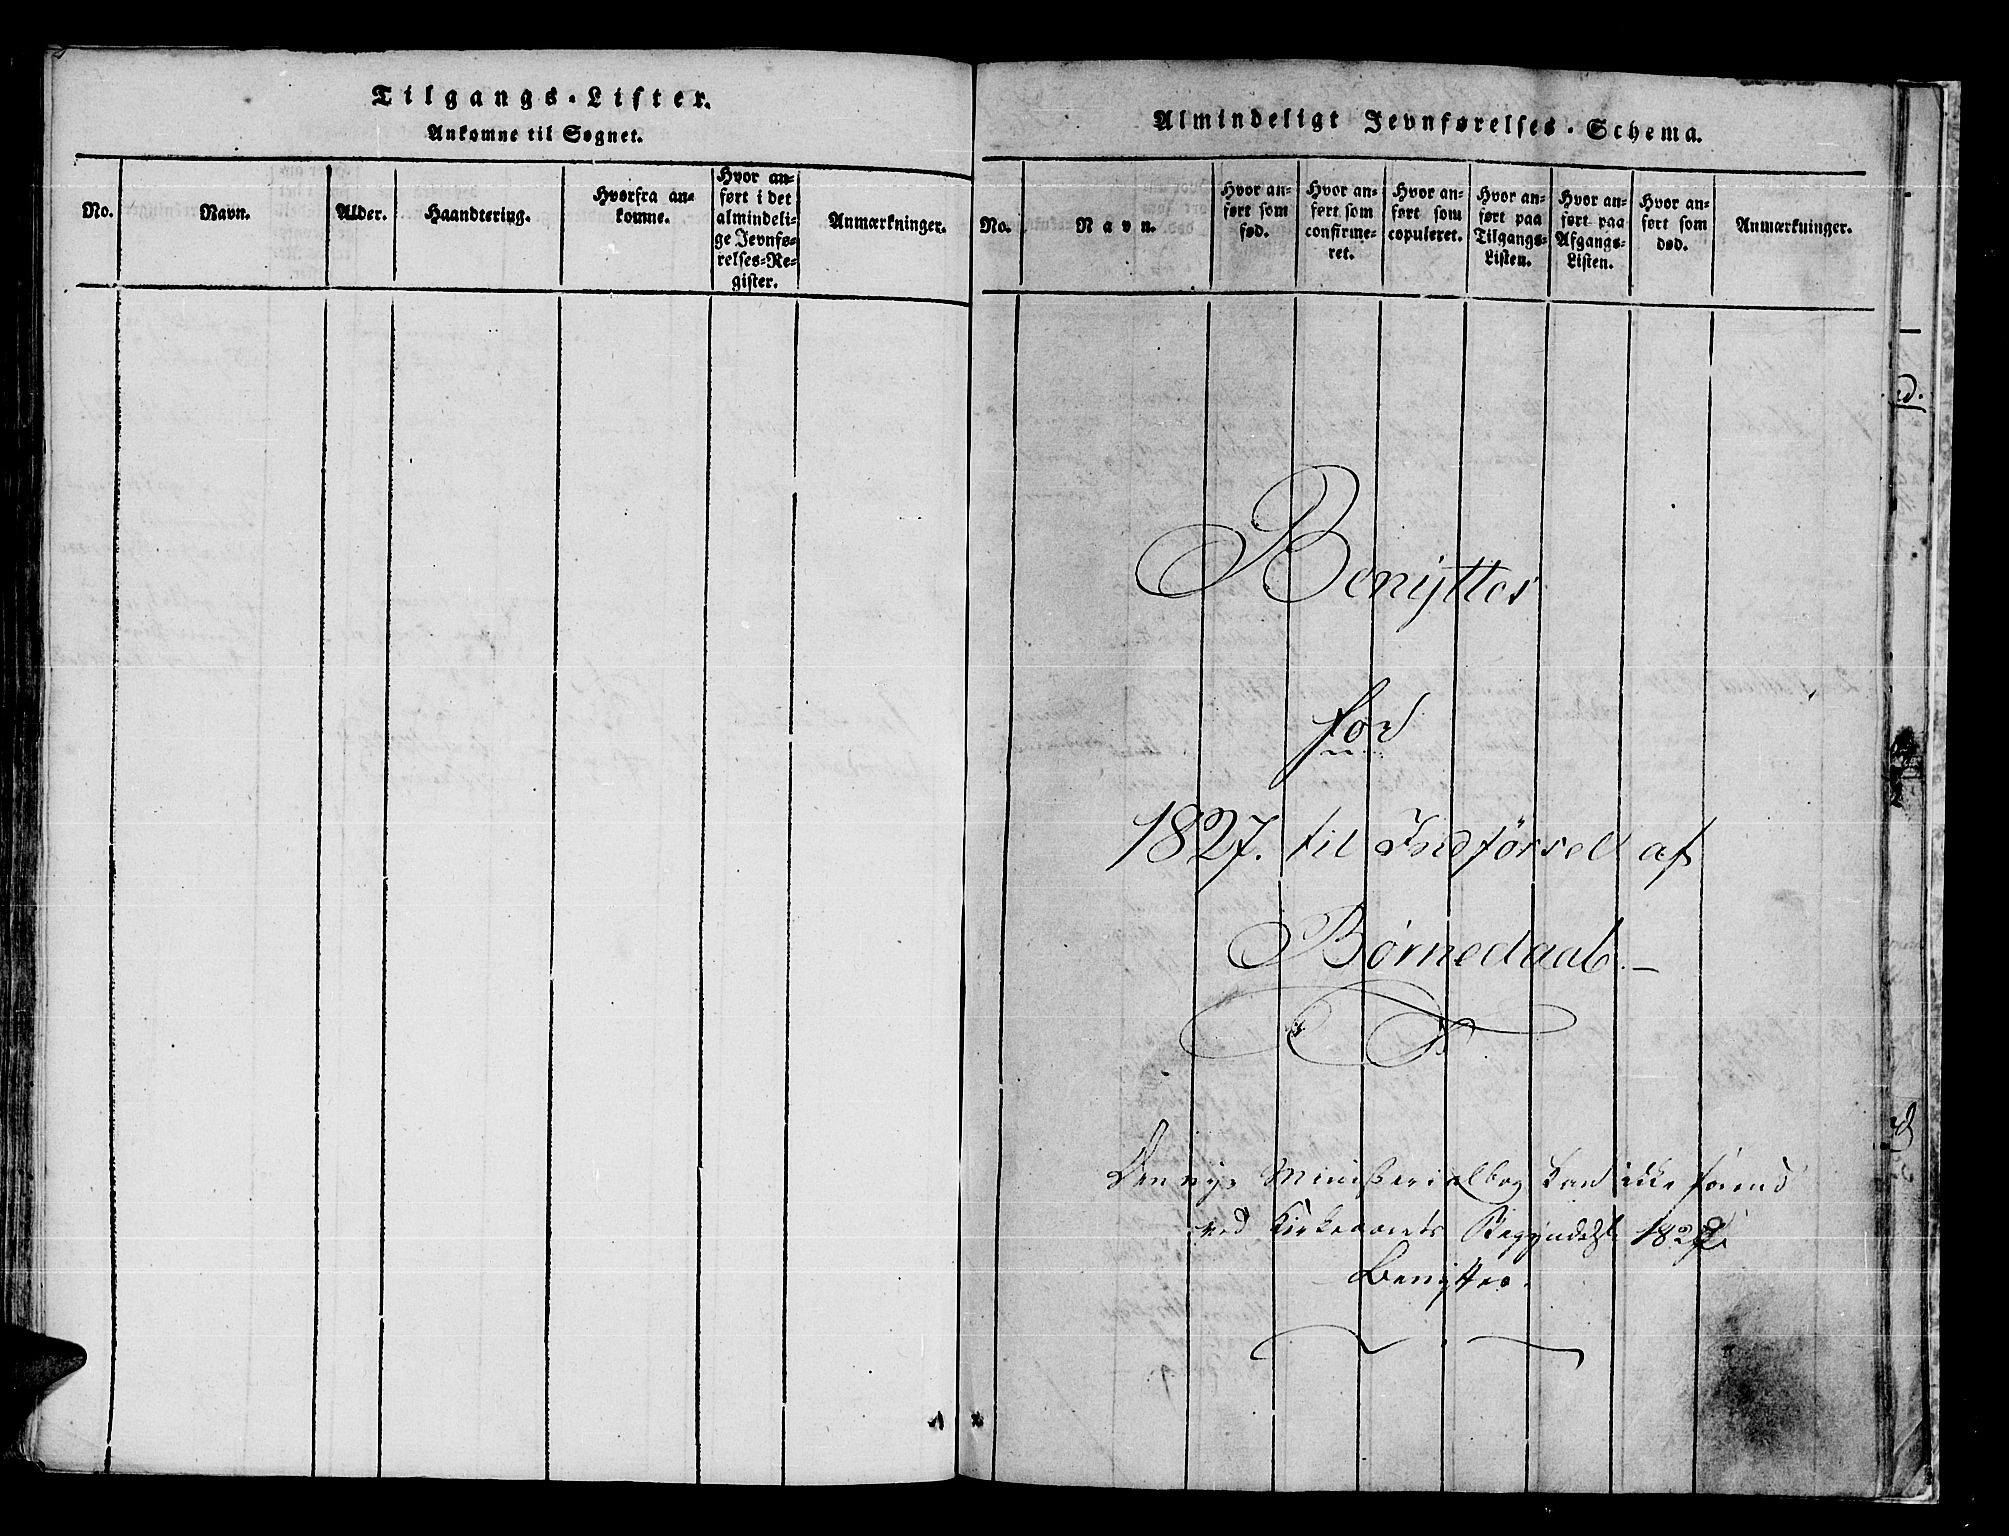 Tilgangs-Lister.
Ankomne til Sognet.
No.
Navn.
Alder.
Haandtering.
Hvorfra an-
komne.
Hvor an-
ført i det
almindeli-
ge Jevnfø-
relses-Re-
gister.
Anmærkninger.
Almindeligt Jevnførelses-Schema.
No.
Navn.
Hvor an-
ført som
fød.
Hvor an-
ført som
confirme-
ret.
Hvor an-
ført som
copuleret.
Hvor an-
ført paa
Tilgangs-
Listen.
Hvor an-
ført paa
Afgangs-
Listen.
Hvor an-
ført som
død.
Anmærkninger.
Benyttes
for
1827. til Indførsel af
Børnedaab.—
Den nye Ministerialbog kan ikke førend
ved Kirkeaarets Begyndelse
Benyttes.